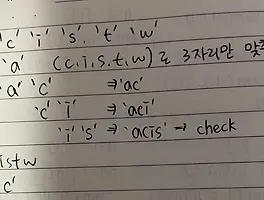 'c' 'i' 's' 't' 'w'
'a' (c,i,s,t,w)로 3자리만 맞
'a' 'c' ⇒ 'ac'
'c' 'i' ⇒ 'aci'
'i' 's' ⇒ 'acis' → check
istw
c'